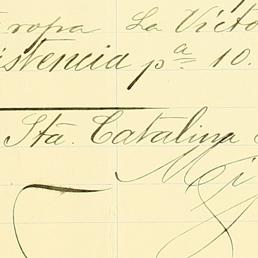 ropa La Victo
istencia pª 10.
Sta. Catalina